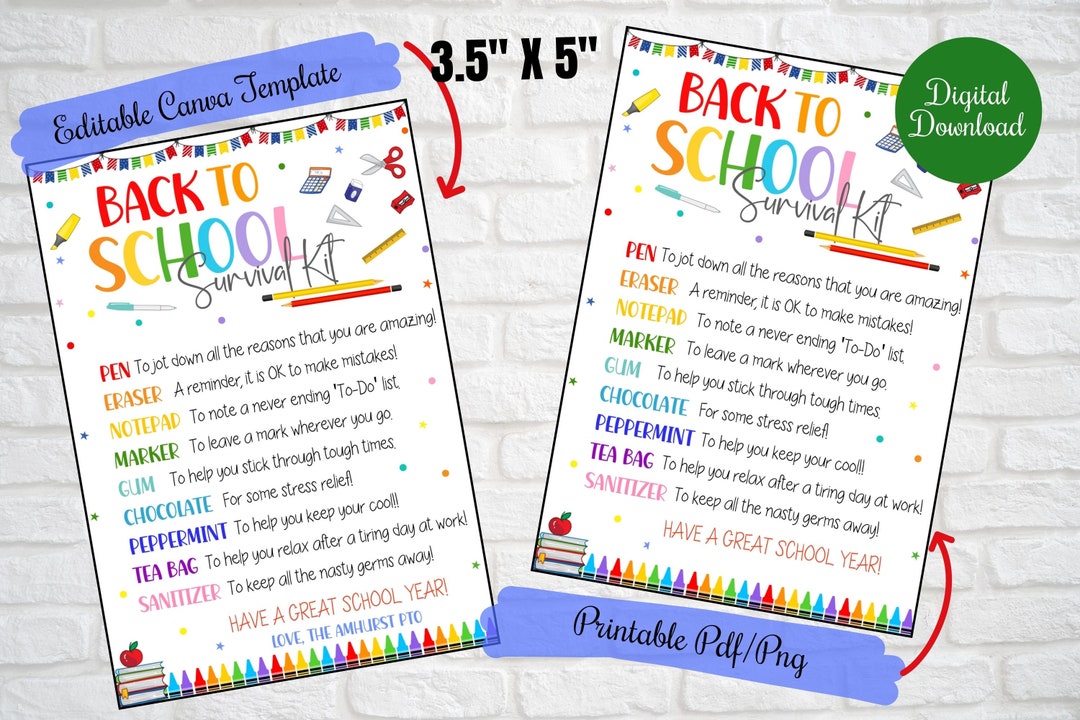 Editable Canva Template
3.5" X 5"
Digital
Download
BACK TO
SCHOOL
Survival Kit
PEN To jot down all the reasons that you are amazing!
ERASER A reminder, it is OK to make mistakes!
NOTEPAD To note a never ending 'To-Do' list.
MARKER To leave a mark wherever you go.
GUM To help you stick through tough times.
CHOCOLATE For some stress relief!
PEPPERMINT To help you keep your cool!!
TEA BAG To help you relax after a tiring day at work!
SANITIZER To keep all the nasty germs away!
HAVE A GREAT SCHOOL YEAR!
LOVE, THE AMHURST PTO
BACK TO
SCHOOL
Survival Kit
PEN To jot down all the reasons that you are amazing!
ERASER A reminder, it is OK to make mistakes!
NOTEPAD To note a never ending 'To-Do' list.
MARKER To leave a mark wherever you go.
GUM To help you stick through tough times.
CHOCOLATE For some stress relief!
PEPPERMINT To help you keep your cool!!
TEA BAG To help you relax after a tiring day at work!
SANITIZER To keep all the nasty germs away!
HAVE A GREAT SCHOOL YEAR!
Printable Pdf/Png